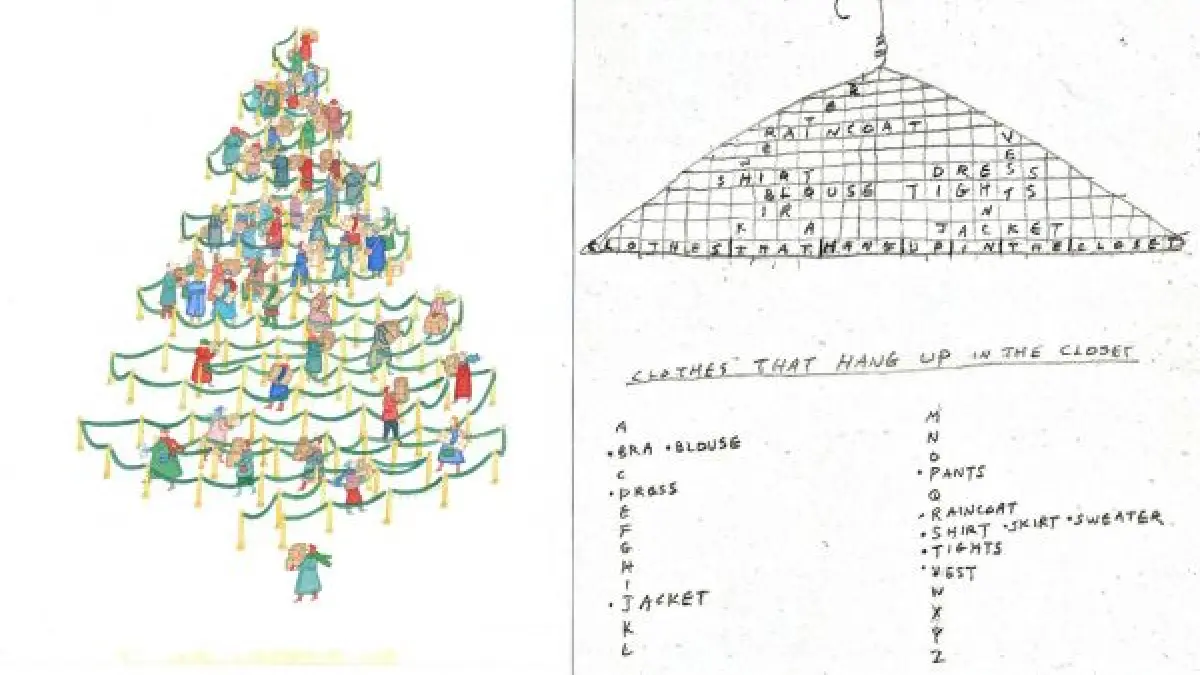 RAINCOAT
SHIRT DRESS
BLOUSE TIGHTS
JACKET
CLOTHES THAT HANG UP IN THE CLOSET
CLOTHES THAT HANG UP IN THE CLOSET
A
•BRA •BLOUSE
C
•DRESS
E
F
G
H
I
•JACKET
K
L
M
N
O
•PANTS
Q
•RAINCOAT
•SHIRT •SKIRT •SWEATER
•TIGHTS
•VEST
W
X
Y
Z